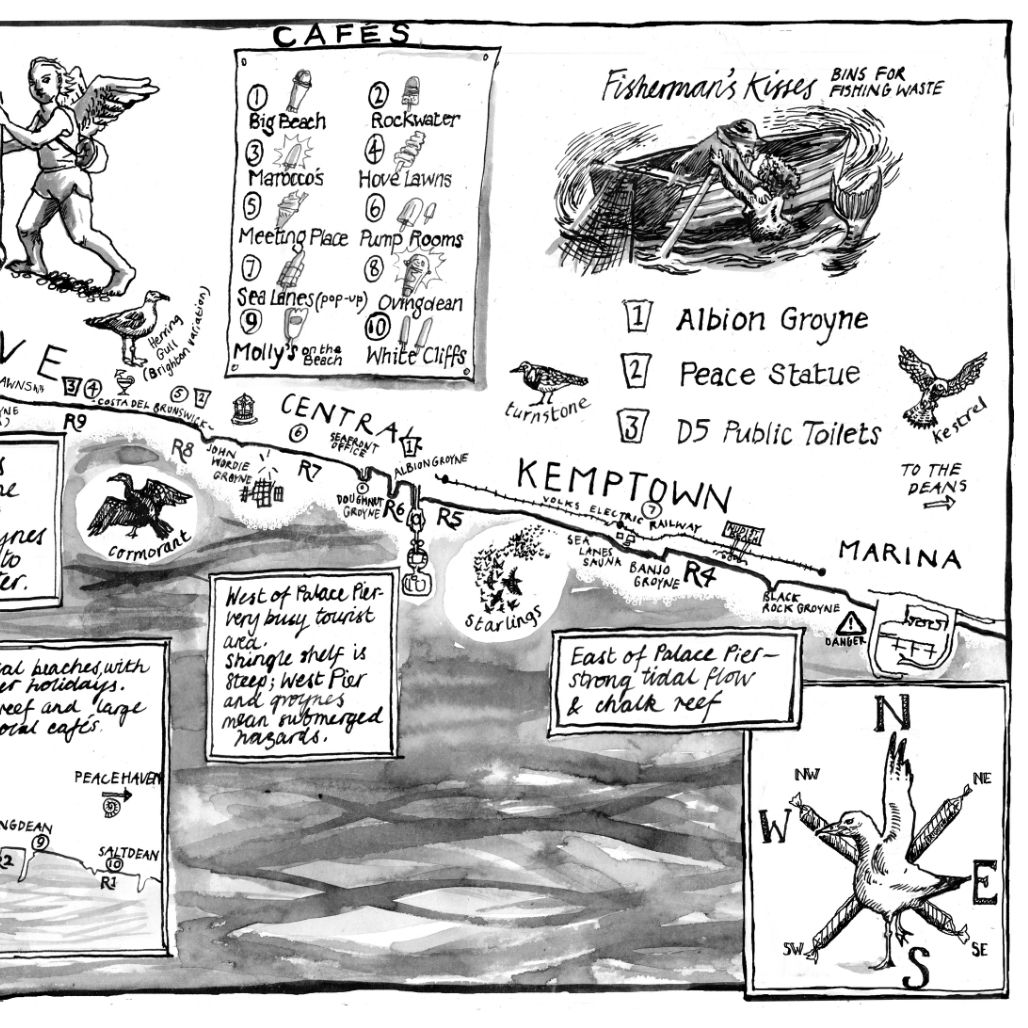 CAFÉS
1 2
Big Beach Rockwater
3 4
Marocco's Hove Lawns
5 6
Meeting Place Pump Rooms
7 8
Sea Lanes (pop-up) Ovingdean
9 10
Molly's on the Beach White Cliffs
Fisherman's Kisses BINS FOR
FISHING WASTE
1 Albion Groyne
2 Peace Statue
3 D5 Public Toilets
turnstone
kestrel
TO THE
DEANS
Herring
Gull
(Brighton variation)
VE
AWNS
3 4
5 2
~COSTA DEL BRUNSWICK~
R9
R8
JOHN
WORDIE
GROYNE
CENTRAL
6
SEAFRONT
OFFICE
R7
1
ALBION GROYNE
8
DOUGHNUT
GROYNE
R6
R5
KEMPTOWN
VOLKS ELECTRIC RAILWAY
7
SEA
LANES
SAUNA
BANJO
GROYNE
R4
NUDIST
BEACH
BLACK
ROCK GROYNE
MARINA
DANGER
cormorant
starlings
s
ne
ynes
to
ter.
West of Palace Pier-
very busy tourist
area.
Shingle shelf is
steep; West Pier
and groynes
mean submerged
hazards.
East of Palace Pier—
strong tidal flow
& chalk reef
al beaches, with
er holidays.
reef and large
ocial cafés.
PEACEHAVEN
NGDEAN
9
R2
SALTDEAN
10
R1
N
NW NE
W
E
SW SE
S